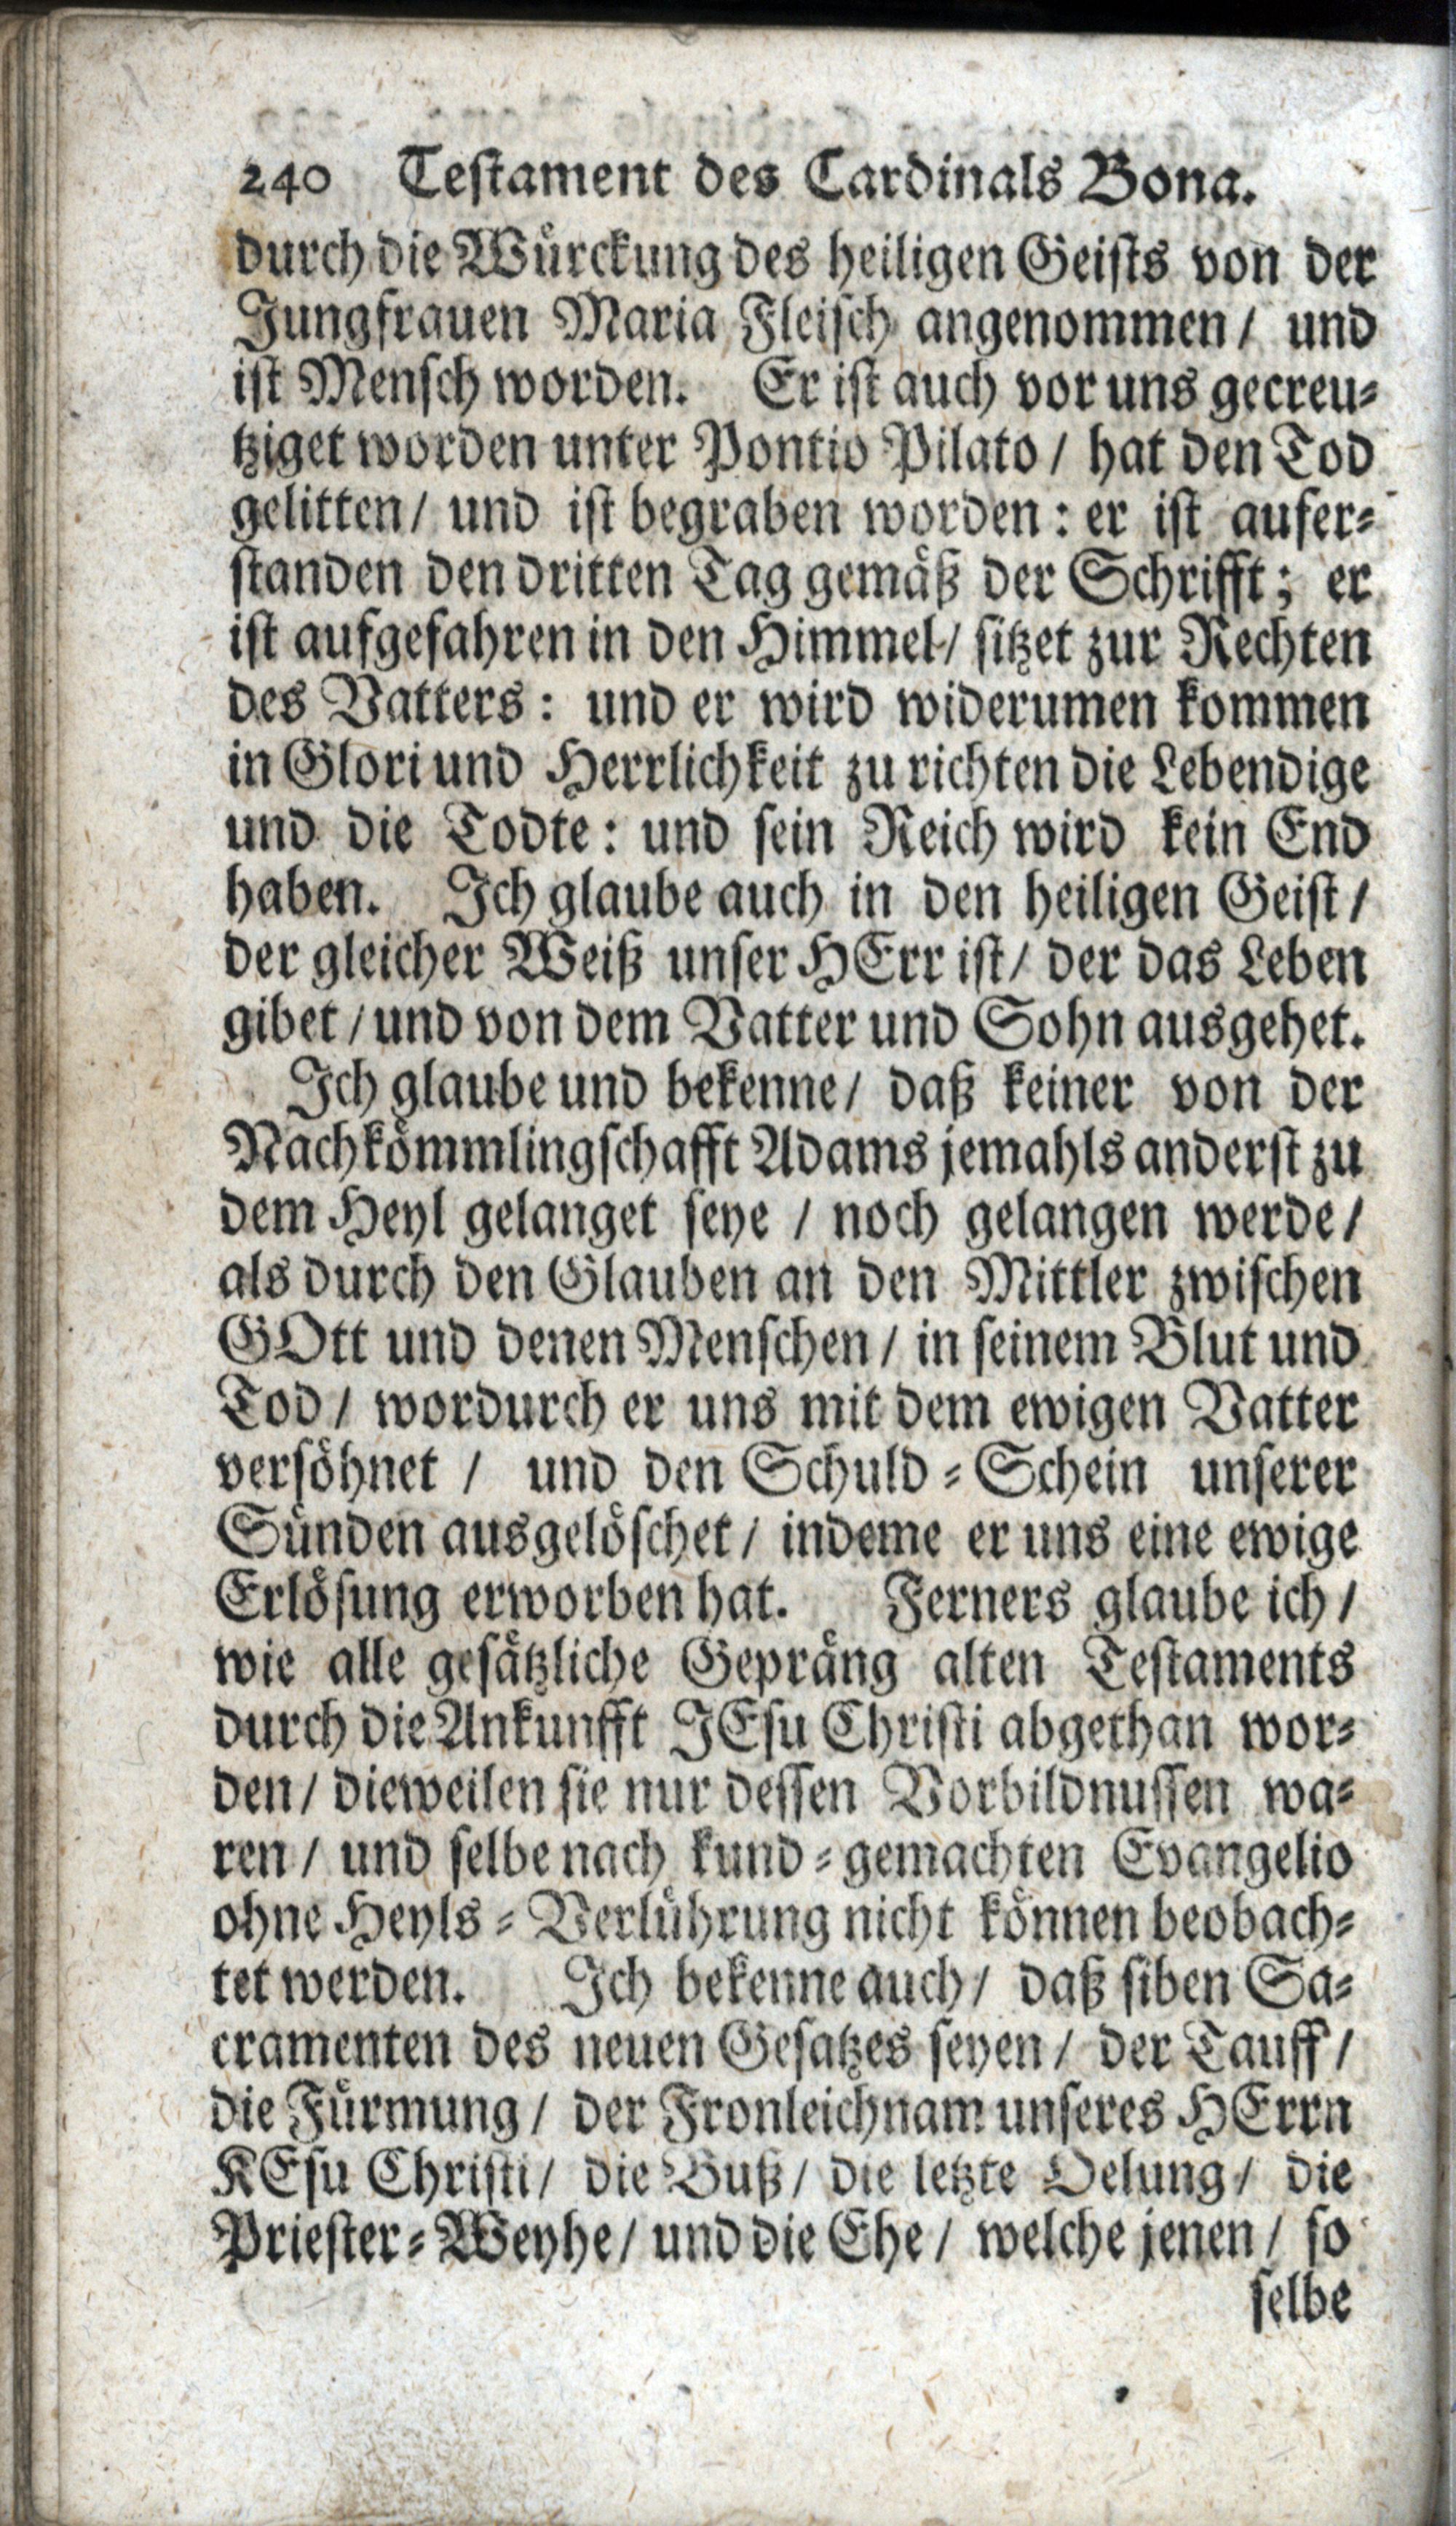 240 Testament des Cardinals Bona.
durch die Würckung des heiligen Geists von der
Jungfrauen Maria Fleisch angenommen / und
ist Mensch worden. Er ist auch vor uns gecreu-
tziget worden unter Pontio Pilato / hat den Tod
gelitten / und ist begraben worden : er ist aufer-
standen den dritten Tag gemäß der Schrifft ; er
ist aufgefahren in den Himmel / sitzet zur Rechten
des Vatters : und er wird widerumen kommen
in Glori und Herrlichkeit zu richten die Lebendige
und die Todte : und sein Reich wird kein End
haben. Ich glaube auch in den heiligen Geist /
der gleicher Weiß unser HErr ist / der das Leben
gibet / und von dem Vatter und Sohn ausgehet.
Ich glaube und bekenne / daß keiner von der
Nachkömmlingschafft Adams jemahls anderst zu
dem Heyl gelanget seye / noch gelangen werde /
als durch den Glauben an den Mittler zwischen
GOtt und denen Menschen / in seinem Blut und
Tod / wordurch er uns mit dem ewigen Vatter
versöhnet / und den Schuld-Schein unserer
Sünden ausgelöschet / indeme er uns eine ewige
Erlösung erworben hat. Ferners glaube ich /
wie alle gesätzliche Gepräng alten Testaments
durch die Ankunfft JEsu Christi abgethan wor-
den / dieweilen sie nur dessen Vorbildnussen wa-
ren / und selbe nach kund-gemachten Evangelio
ohne Heyls-Verlührung nicht können beobach-
tet werden. Ich bekenne auch / daß siben Sa-
cramenten des neuen Gesatzes seyen / der Tauff /
die Fürmung / der Fronleichnam unseres HErrn
KEsu Christi / die Buß / die letzte Oelung / die
Priester-Weyhe / und die Ehe / welche jenen / so
selbe